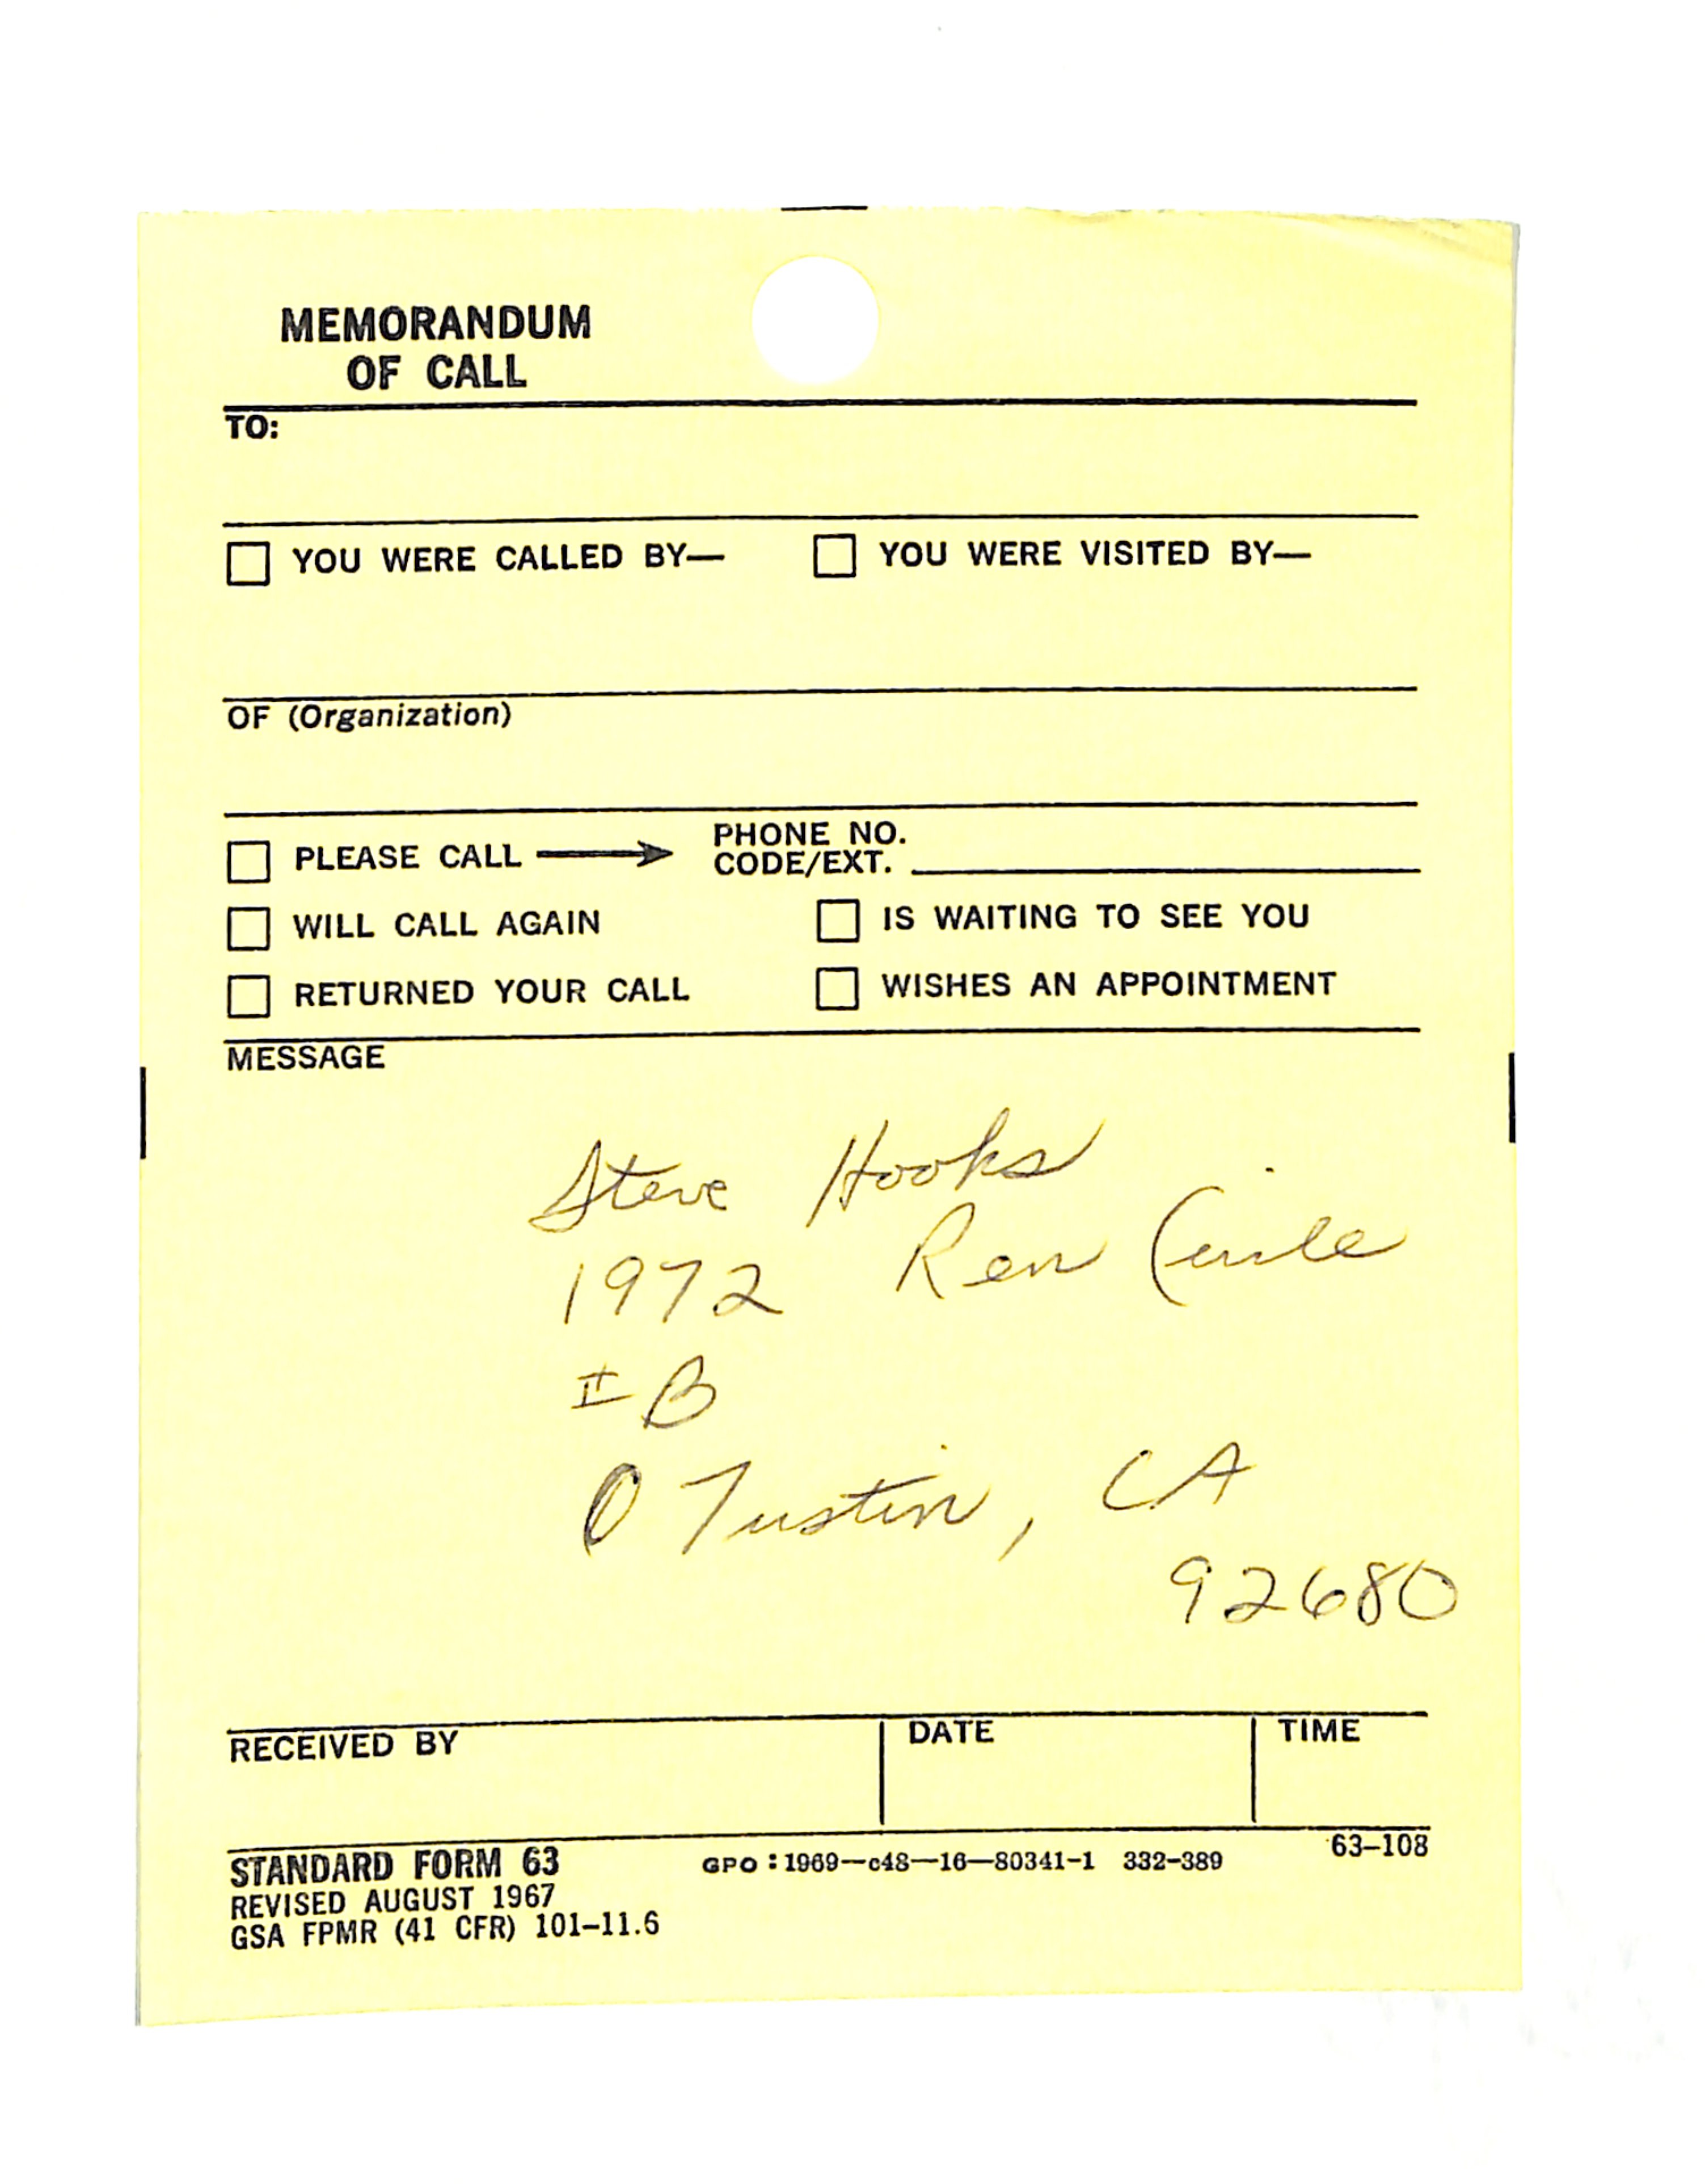 MEMORANDUM
OF CALL
TO:
YOU WERE CALLED BY— YOU WERE VISITED BY—
OF (Organization)
PLEASE CALL → PHONE NO.
CODE/EXT.
WILL CALL AGAIN IS WAITING TO SEE YOU
RETURNED YOUR CALL WISHES AN APPOINTMENT
MESSAGE
Steve Hooks
1972 Ren Circle
B
Tustin, CA
92680
RECEIVED BY DATE TIME
STANDARD FORM 63 GPO : 1969—c48—16—80341-1 332-389 63-108
REVISED AUGUST 1967
GSA FPMR (41 CFR) 101-11.6